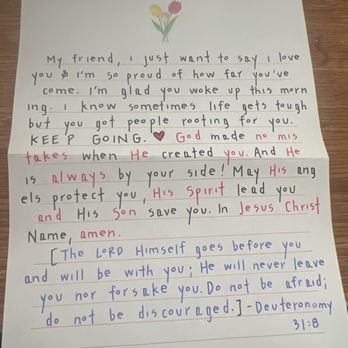 My friend, i just want to say i love
you & i'm so proud of how far you've
come. i'm glad you woke up this morn
ing. i know sometimes life gets tough
but you got people rooting for you.
KEEP GOING. ♥ God made no mis
takes when He created you. And He
is always by your side! May His ang
els protect you, His Spirit lead you
and His Son save you. In Jesus Christ
Name, amen.
[The LORD Himself goes before you
and will be with you; He will never leave
you nor forsake you. Do not be afraid;
do not be discouraged.] - Deuteronomy
31:8